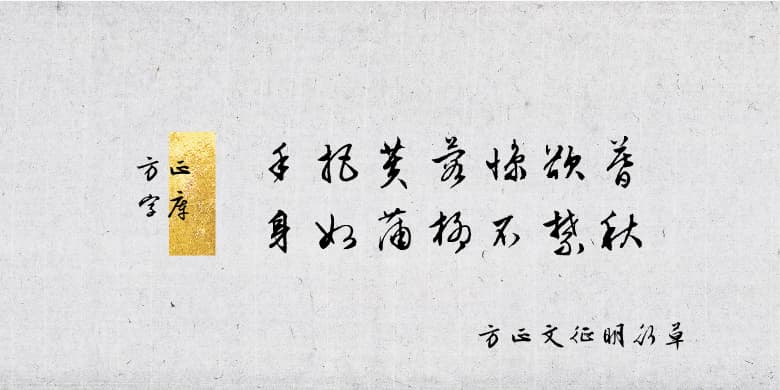 方正
字庫
手把芙蓉憐欲暮
身如蒲柳不禁秋
方正文征明行草